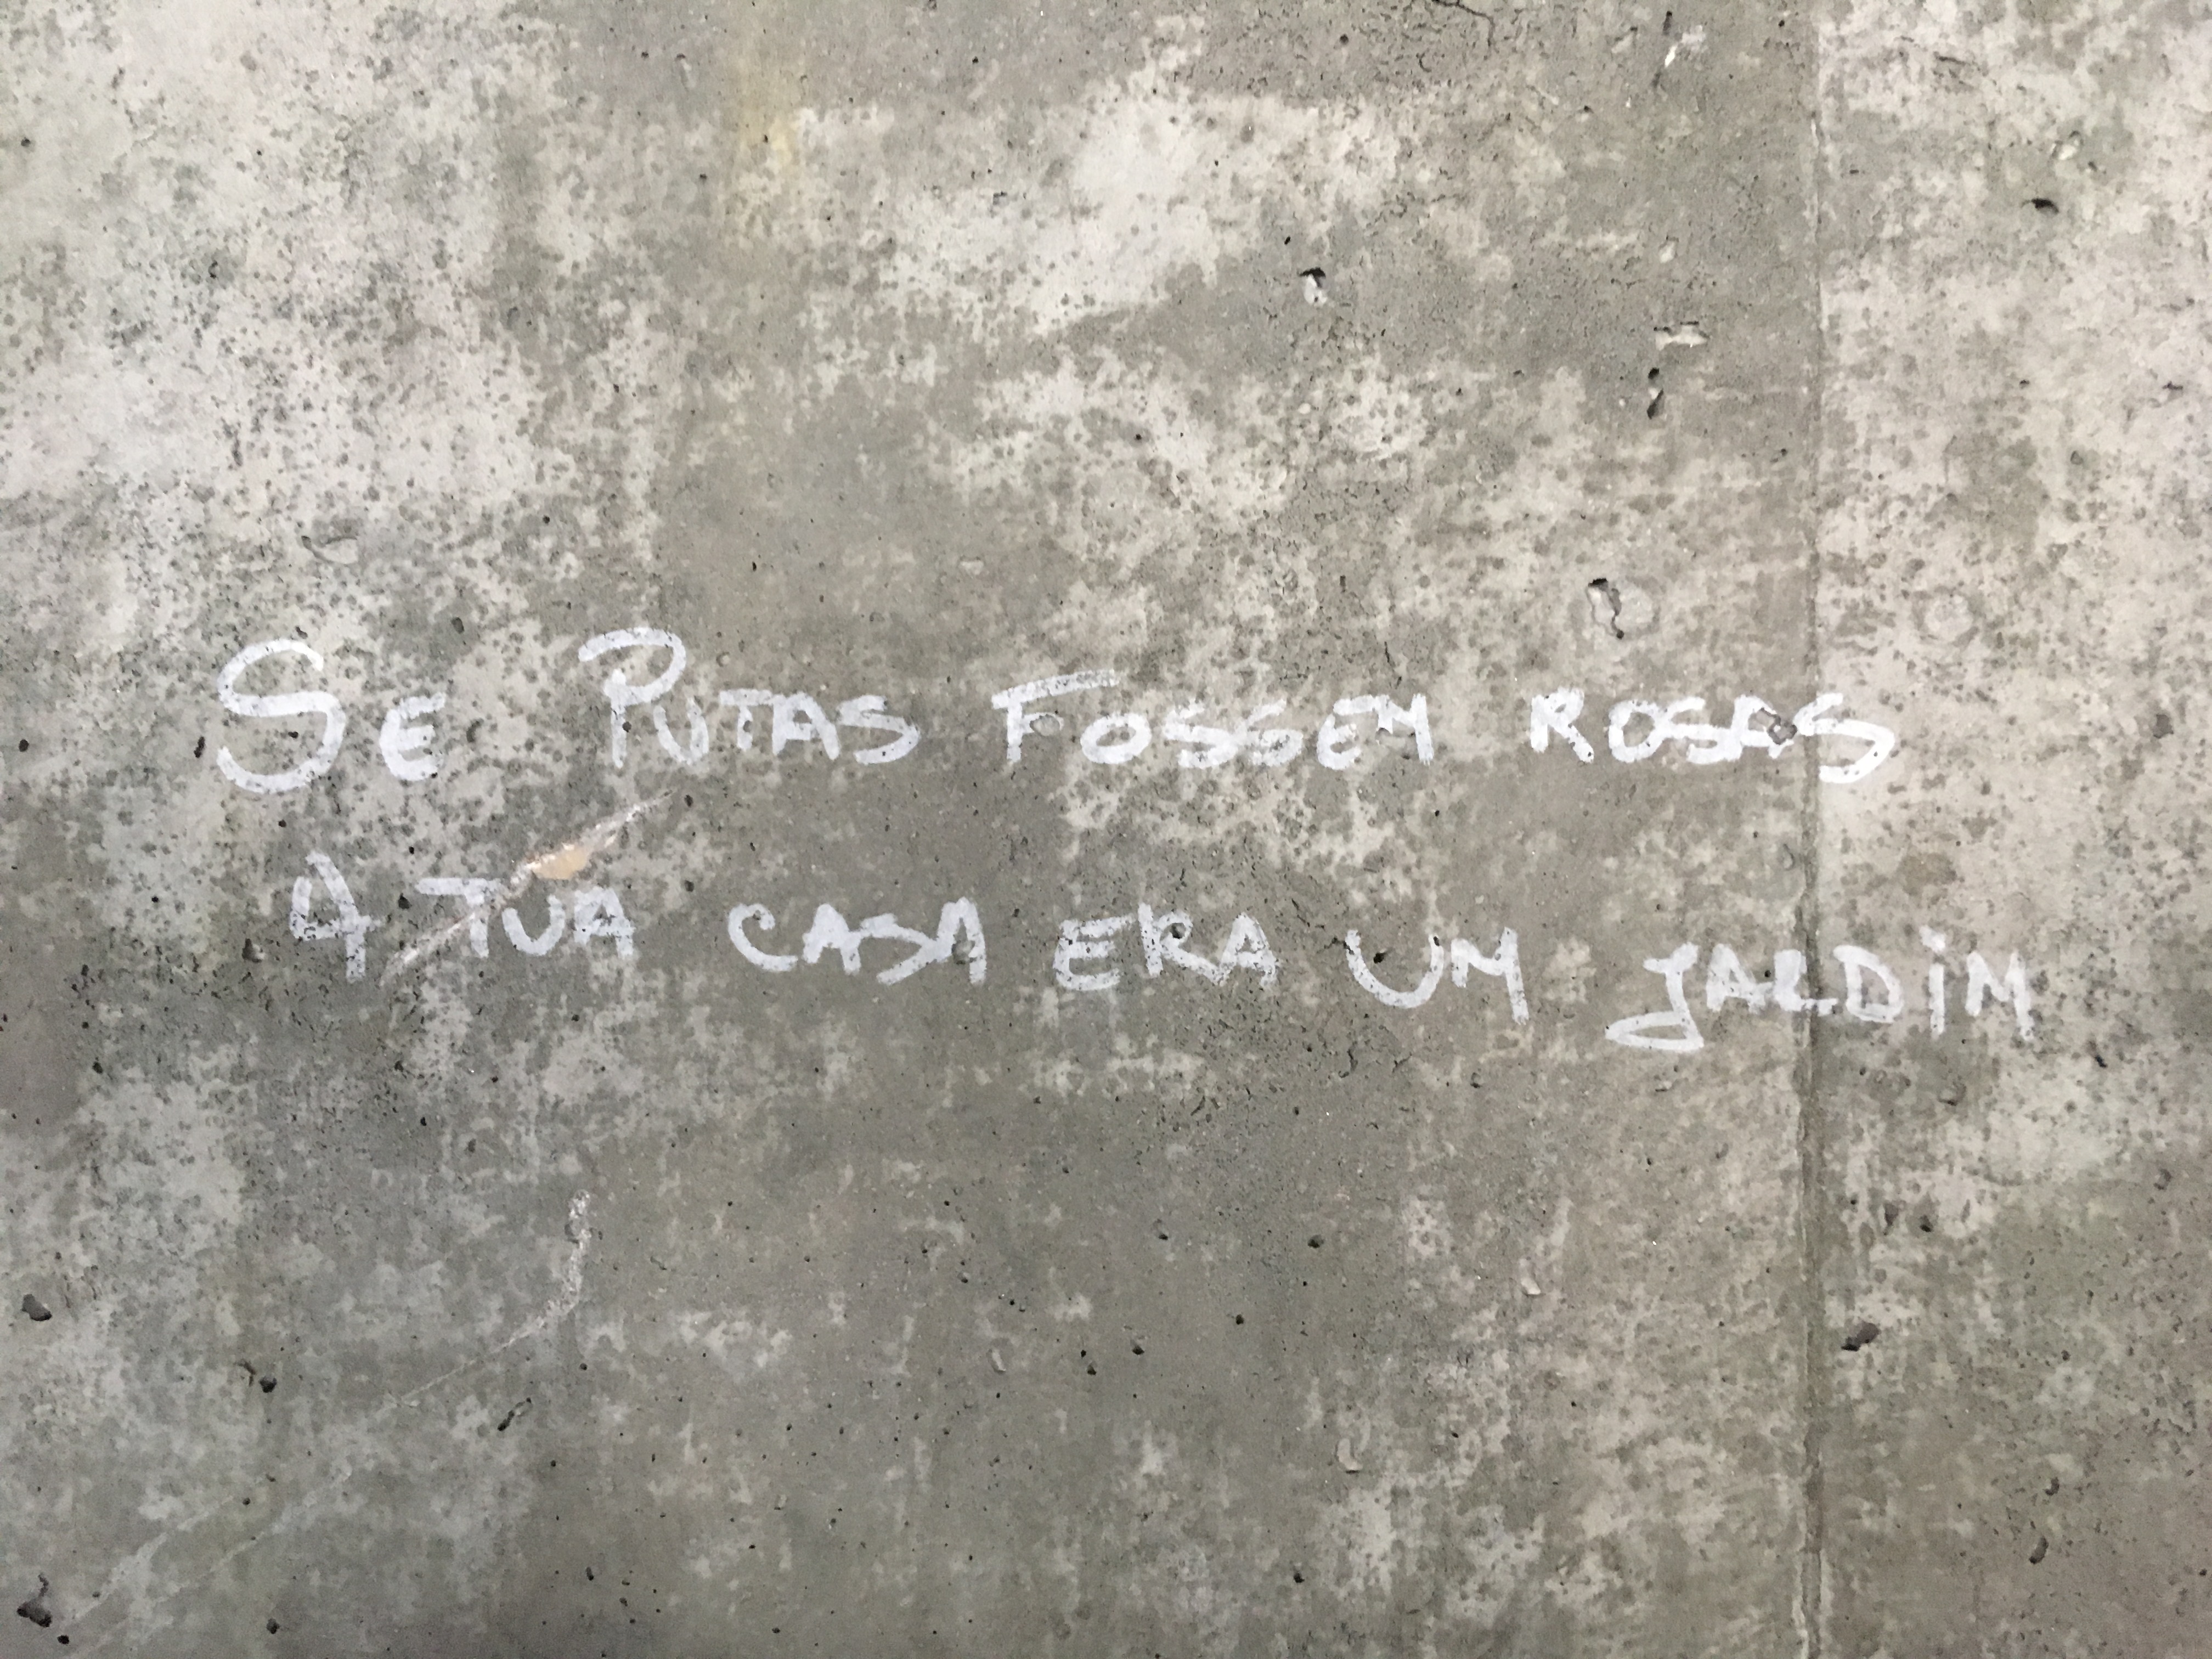 Se Putas Fossem rosas
A tua casa era um jardim